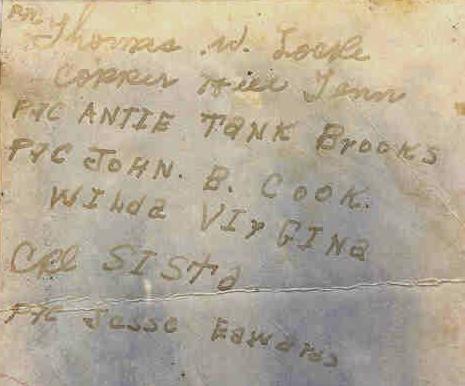 Pfc
Thomas .W. Locke
Copper Hill Tenn
PFC ANTIE TANK BrooKS
PFC JOHN. B. COOK.
WILda VIrGINa
Cpl SISTa
PFC Jesse Edwards